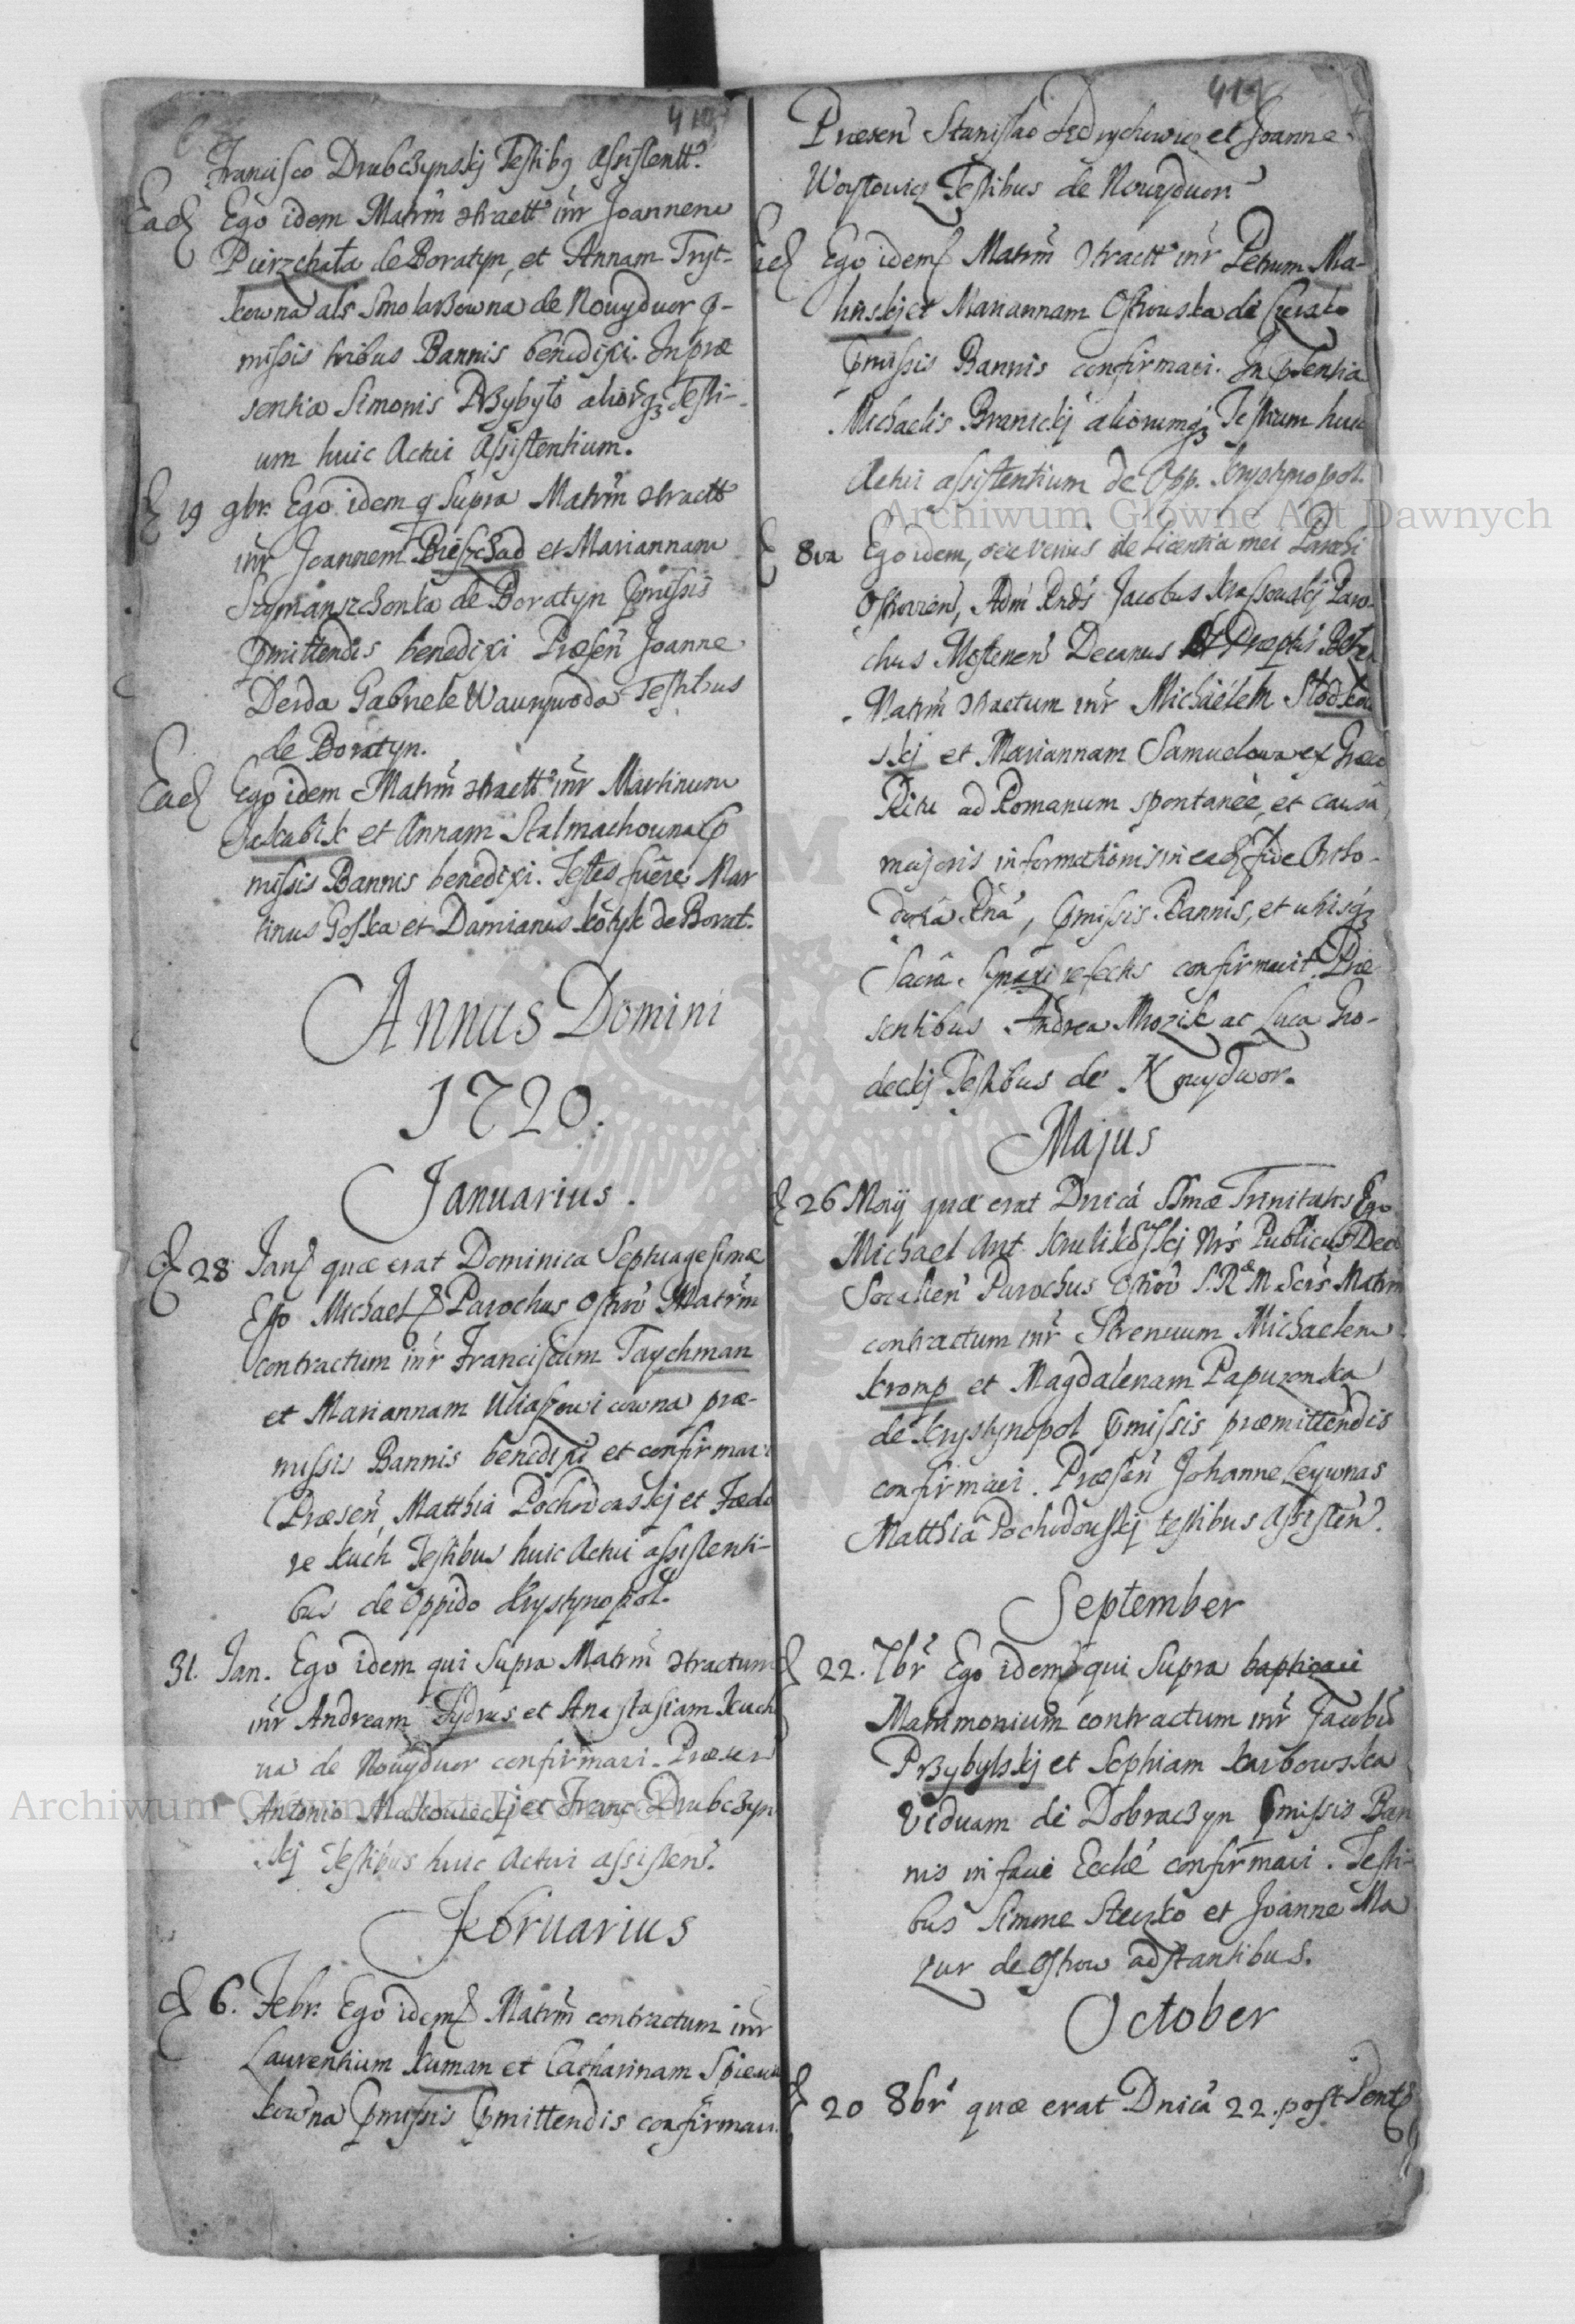 Francisco Drubczynskj Testibq assistentt.
Ead Ego idem Matrm 9tractt inr Joannem
Pierzchała de Boratyn, et Annam Tryt-
kowna als Smolarzowna de Nouydwor p-
missis tribus Bannis benedixi. In præ
sentia Simonis Przybyło aliorqz Testi-
um huic Actui Assistentium.
19 9br. Ego idem q Supra Matrm 9tractt
inr Joannem Bieszczad et Mariannam
Szymanszczonka de Boratyn pmissis
pmittendis benedixi Præsen Joanne
Derda Gabriele Wawrywoda Testibus
de Boratyn.
Ead Ego idem Matrm 9tractt inr Martinum
Jakubik et Annam Stalmachowna p
missis Bannis benedixi. Testes fuere Mar
tinus Goska et Damianus Kotyk de Borat.
Annus Domini
1720.
Januarius.
28 Jan quæ erat Dominica Septuagesimæ
Ego Michael Parochus Ostrov Matrm
contractum inr Franciscum Taychman
et Mariannam Uliaszowicowna præ-
missis Bannis benedixi et confirmavi
Præsen Matthia Pochodowskj et Fædo
re Kuch Testibus huic Actui assistenti-
bus de Oppido Krystynopol.
31. Jan. Ego idem qui Supra Matrm 9tractum
inr Andream Fydrus et Anastasiam Kuch
na de Nouydwor confirmavi. Præsen
Antonio Makowieckj et Franc Drubczyn
skj Testibus huic Actui assisten.
Februarius
6. Febr. Ego idem Matrm contractum inr
Laurentium Kuman et Catharinam
kowna pmissis pmittendis confirmavi.
419
Præsen Stanislao Jedrychowicz et Joanne
Woytowicz Testibus de Nouydwor
Ead Ego idem Matrm 9tractt inr Petrum Ma-
linskj et Mariannam Ostrowska de
pmissis Bannis confirmavi. In psentia
Michaelis Branickj aliorumqz Testium huic
Actui assistentium de Opp. Krystynopol.
8va Ego idem, seu verius de Licentia mei Parochi
Ostrovien, Adm Rnds Jacobus Krassowskj Paro-
chus Mostenen Decanus
Matrm 9tractum inr Michaëlem Słodkow
skj et Mariannam Samuelowa ex Græco
Ritu ad Romanum spontanée, et causa
majoris informationis in ead Fide Orto-
doxa Rna, pmissis Bannis, et utrisqz
Sacra Synaxi refectis confirmavit Præ
sentibus Andrea Mrozik ac Luca Gro-
deckj Testibus de Nouydwor.
Majus
26 Maij quæ erat Dnica SSmæ Trinitatis Ego
Michael Ant. Krulikowskj Nrs Publicus Dec
Socalien Parochus Ostrov S. R. M. Scrs Matrm
contractum inr Strenuum Michaelem
Kromp et Magdalenam Papuzonka
de Krystynopol pmissis præmittendis
confirmavi. Præsen Johanne Leywnas
Matthia Pochodowskj testibus Assisten.
September
22. 7br Ego idem qui Supra baptizavi
Matrimonium contractum inr Jacobu
Przybylskj et Sophiam Karbowska
Viduam de Dobraczyn pmissis Ban
nis in facie Ecclé confirmavi. Testi-
bus Simone Steczko et Joanne Ma
zur de Ostrow adstantibus.
October
20 8br quæ erat Dnica 22. post Pent
Archiwum Główne Akt Dawnych
Archiwum Główne Akt Dawnych